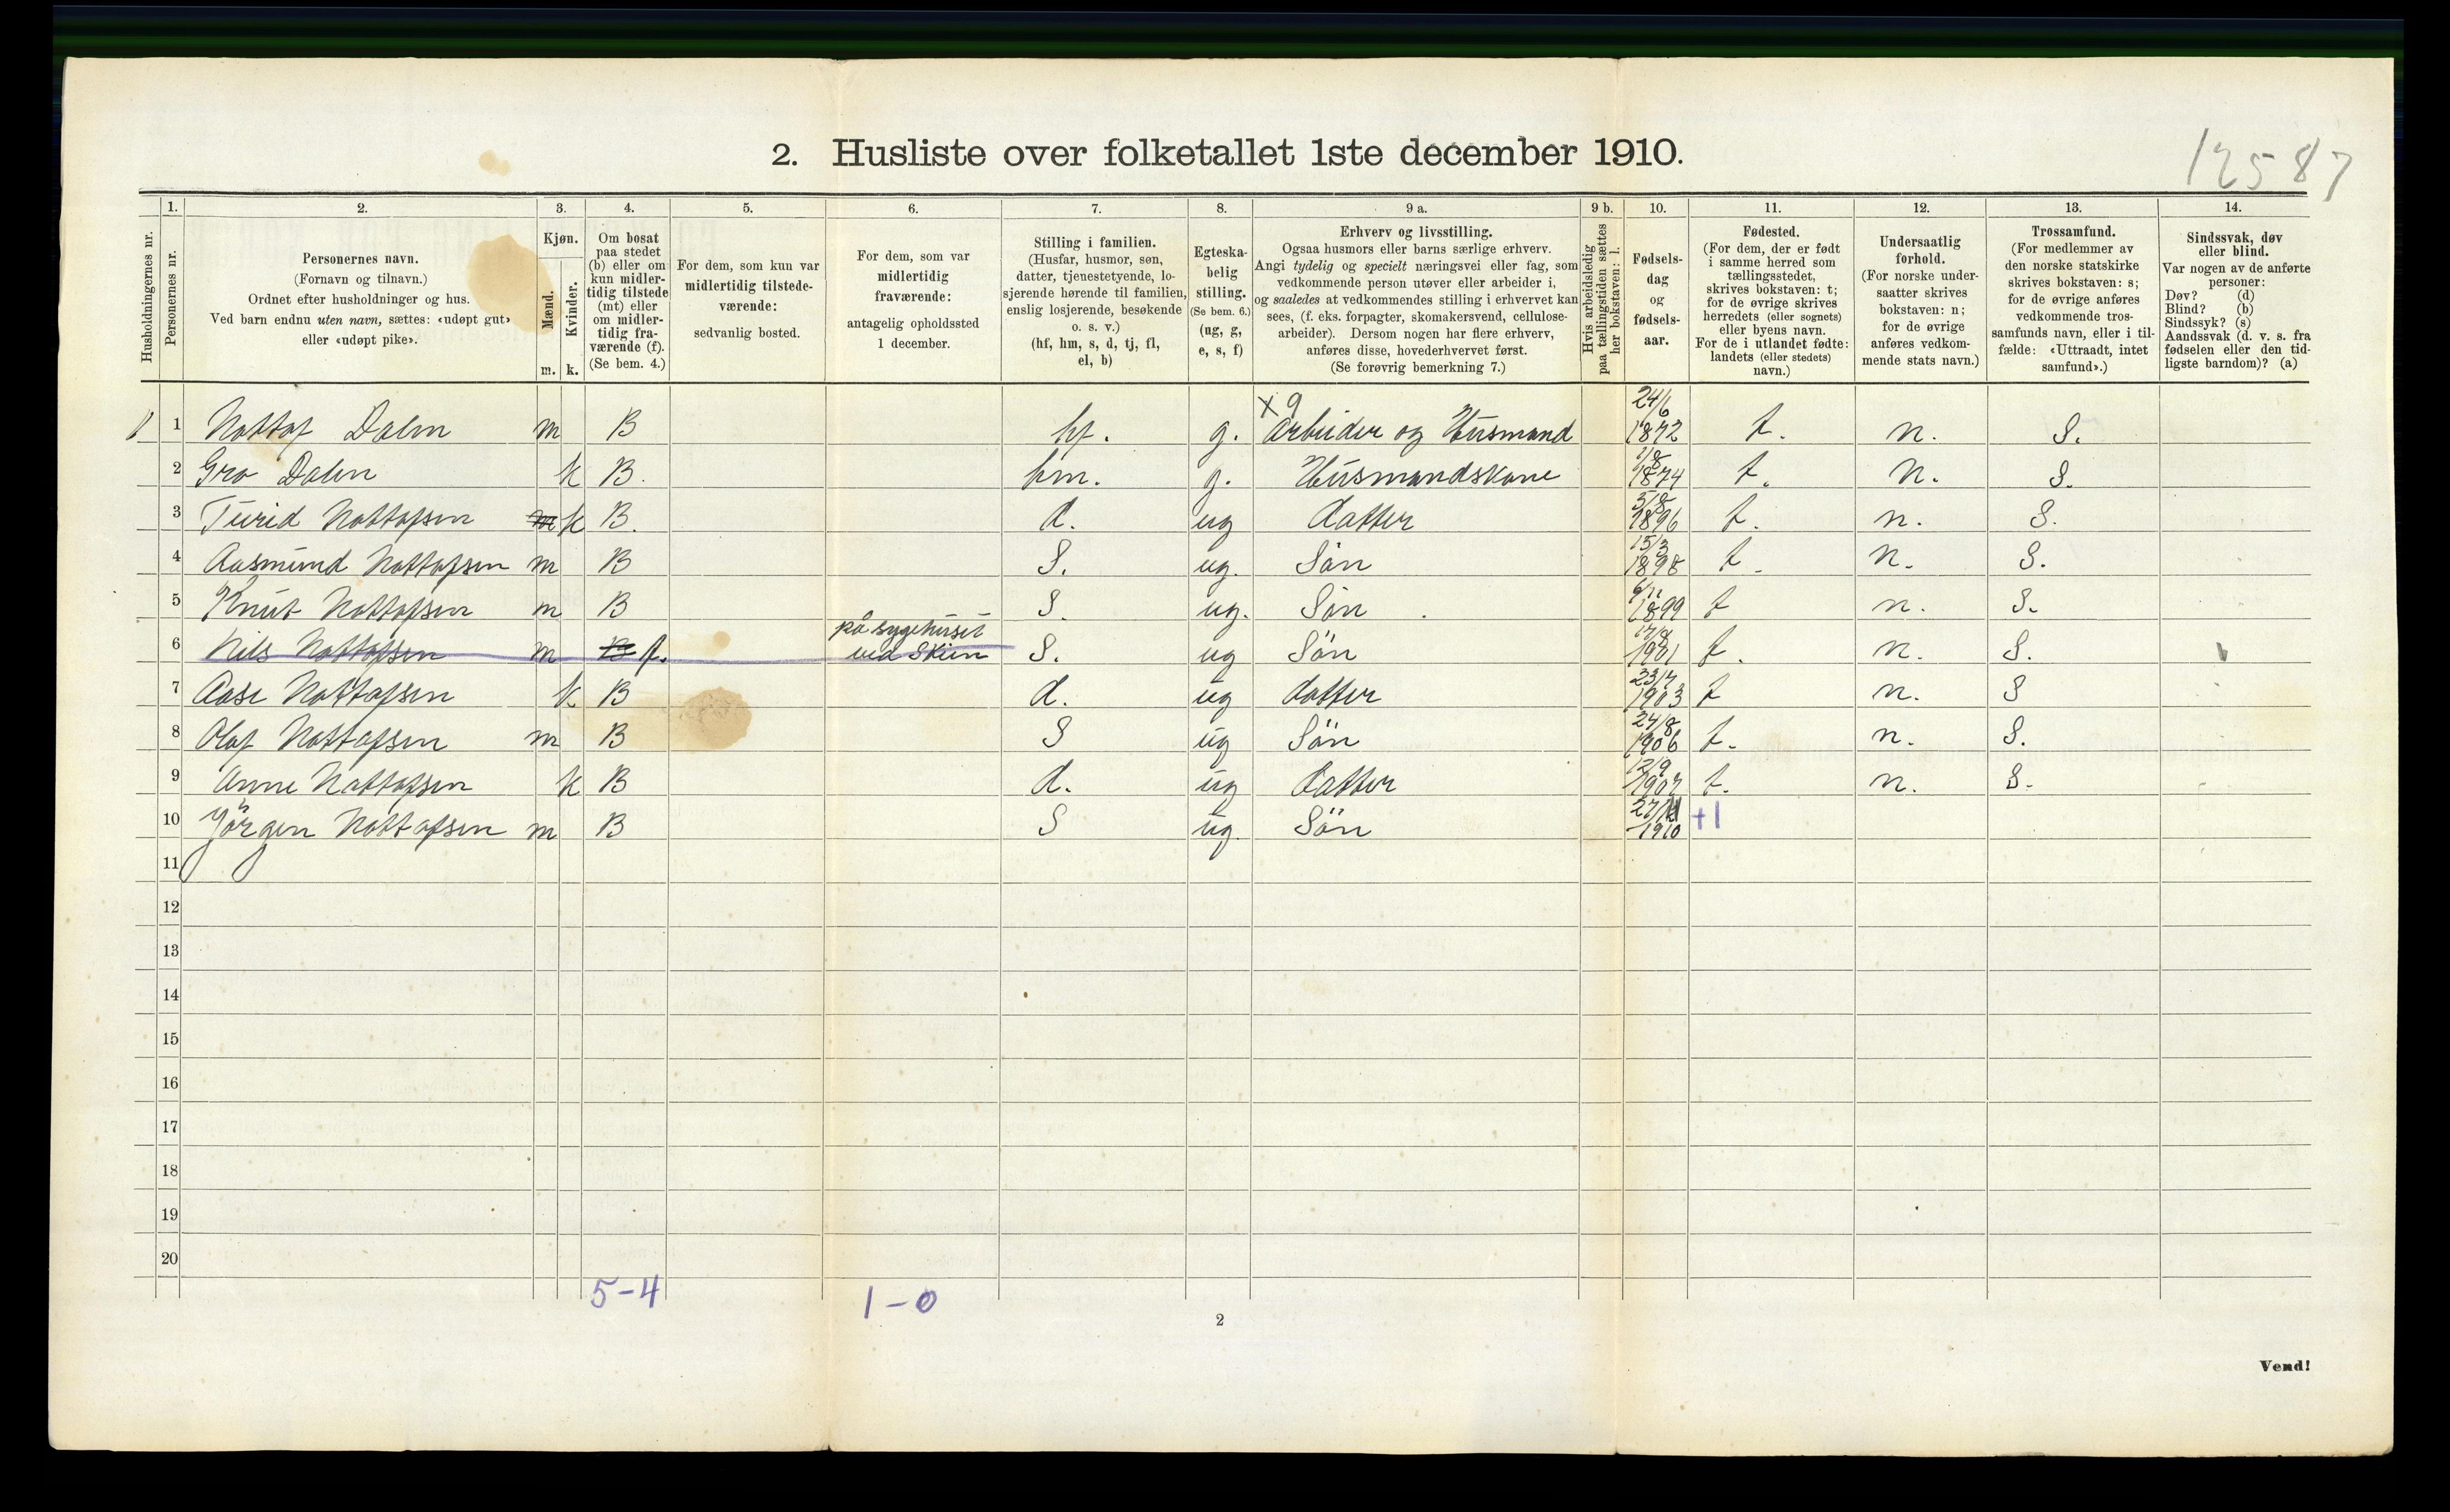 2. Husliste over folketallet 1ste december 1910.
12587
Husholdningernes nr.
1.
Personernes nr.
2.
Personernes navn.
(Fornavn og tilnavn.)
Ordnet efter husholdninger og hus.
Ved barn endnu uten navn, sættes: «udøpt gut»
eller «udøpt pike».
3.
Kjøn.
Mænd.
Kvinder.
m. k.
4.
Om bosat
paa stedet
(b) eller om
kun midler-
tidig tilstede
(mt) eller
om midler-
tidig fra-
værende (f).
(Se bem. 4.)
5.
For dem, som kun var
midlertidig tilstede-
værende:
sedvanlig bosted.
6.
For dem, som var
midlertidig
fraværende:
antagelig opholdssted
1 december.
7.
Stilling i familien.
(Husfar, husmor, søn,
datter, tjenestetyende, lo-
sjerende hørende til familien,
enslig losjerende, besøkende
o. s. v.)
(hf, hm, s, d, tj, fl,
el, b)
8.
Egteska-
belig
stilling.
(Se bem. 6.)
(ug, g,
e, s, f)
9 a.
Erhverv og livsstilling.
Ogsaa husmors eller barns særlige erhverv.
Angi tydelig og specielt næringsvei eller fag, som
vedkommende person utøver eller arbeider i,
og saaledes at vedkommendes stilling i erhvervet kan
sees, (f. eks. forpagter, skomakersvend, cellulose-
arbeider). Dersom nogen har flere erhverv,
anføres disse, hovederhvervet først.
(Se forøvrig bemerkning 7.)
9 b.
Hvis arbeidsledig
paa tællingstiden sættes
her bokstaven: l.
10.
Fødsels-
dag
og
fødsels-
aar.
11.
Fødested.
(For dem, der er født
i samme herred som
tællingsstedet,
skrives bokstaven: t;
for de øvrige skrives
herredets (eller sognets)
eller byens navn.
For de i utlandet fødte:
landets (eller stedets)
navn.)
12.
Undersaatlig
forhold.
(For norske under-
saatter skrives
bokstaven: n;
for de øvrige
anføres vedkom-
mende stats navn.)
13.
Trossamfund.
(For medlemmer av
den norske statskirke
skrives bokstaven: s;
for de øvrige anføres
vedkommende tros-
samfunds navn, eller i til-
fælde: «Uttraadt, intet
samfund».)
14.
Sindssvak, døv
eller blind.
Var nogen av de anførte
personer:
Døv? (d)
Blind? (b)
Sindssyk? (s)
Aandssvak (d. v. s. fra
fødselen eller den tid-
ligste barndom)? (a)
x 9
1 Nottof Dalen m B hf. g. Arbeider og Husmand 24/6 1872 t. n. S.
2 Gro Dalen k B. hm. g. Husmandskone 1874 t. n. S.
3 Turid Nottofsen m k B. d. ug datter 5/8 1896 t. n. S.
4 Aasmund Nottofsen m B S. ug. Sön 15/3 1898 t. n. S.
5 Knut Nottofsen m B S. ug. Sön 6/11 1899 t n. S.
på sygehuset
6 Nils Nottofsen m B f. ved Skien S. ug Sön 17/8 1901 t. n. S.
7 Aase Nottofsen k B d. ug datter 23/7 1903 t n. S
8 Olaf Nottofsen m B S ug Sön 24/8 1906 t. n. S.
9 Anne Nottofsen k B d. ug datter 12/9 1907 t. n. S.
10 Jörgen Nottofsen m B S ug. Sön 27/11 1910 +1
11
12
13
14
15
16
17
18
19
20
5-4
1-0
2
Vend!